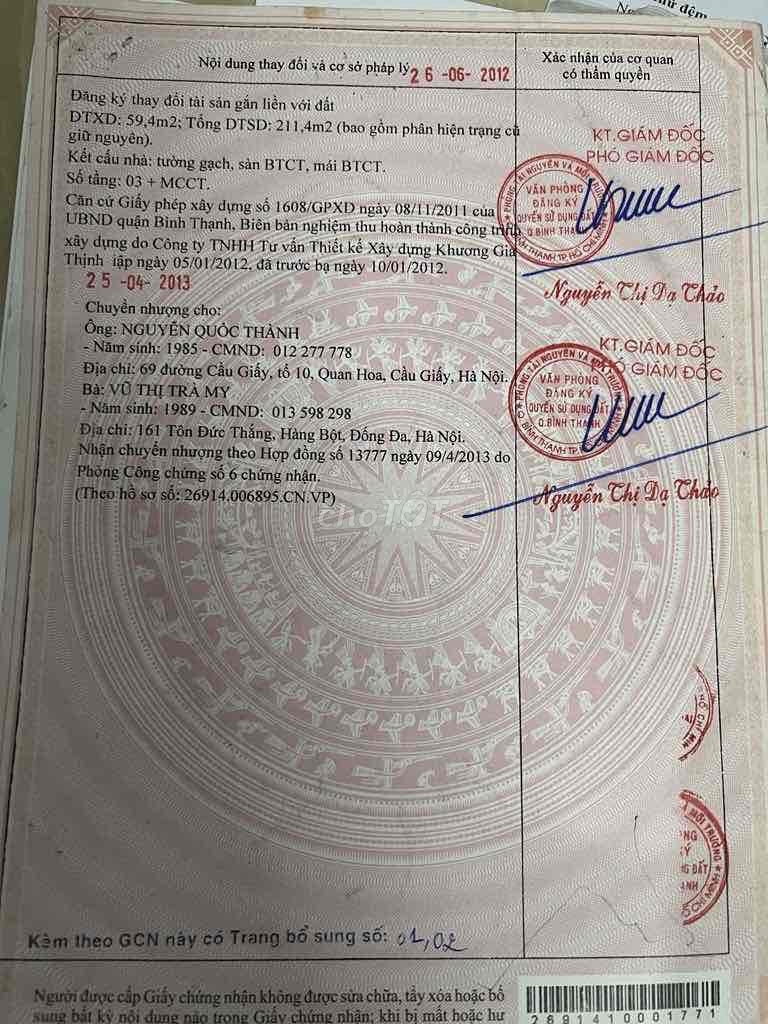 Nội dung thay đổi và cơ sở pháp lý
26 -06- 2012
Xác nhận của cơ quan
có thẩm quyền
Đăng ký thay đổi tài sản gắn liền với đất
DTXD: 59,4m2; Tổng DTSD: 211,4m2 (bao gồm phần hiện trạng cũ
giữ nguyên).
Kết cấu nhà: tường gạch, sàn BTCT, mái BTCT.
Số tầng: 03 + MCCT.
Căn cứ Giấy phép xây dựng số 1608/GPXD ngày 08/11/2011 của
UBND quận Bình Thạnh, Biên bản nghiệm thu hoàn thành công trình
xây dựng do Công ty TNHH Tư vấn Thiết kế Xây dựng Khương Gia
Thịnh lập ngày 05/01/2012, đã trước bạ ngày 10/01/2012.
KT.GIÁM ĐỐC
PHÓ GIÁM ĐỐC
VĂN PHÒNG
ĐĂNG KÝ
QUYỀN SỬ DỤNG ĐẤT
Q.BÌNH THẠNH
Nguyễn Thị Dạ Thảo
25 -04- 2013
Chuyển nhượng cho:
Ông: NGUYỄN QUỐC THÀNH
- Năm sinh: 1985 - CMND: 012 277 778
Địa chỉ: 69 đường Cầu Giấy, tổ 10, Quan Hoa, Cầu Giấy, Hà Nội.
Bà: VŨ THỊ TRÀ MY
- Năm sinh: 1989 - CMND: 013 598 298
Địa chỉ: 161 Tôn Đức Thắng, Hàng Bột, Đống Đa, Hà Nội.
Nhận chuyển nhượng theo Hợp đồng số 13777 ngày 09/4/2013 do
Phòng Công chứng số 6 chứng nhận.
(Theo hồ sơ số: 26914.006895.CN.VP)
KT.GIÁM ĐỐC
PHÓ GIÁM ĐỐC
VĂN PHÒNG
ĐĂNG KÝ
QUYỀN SỬ DỤNG ĐẤT
Q.BÌNH THẠNH
Nguyễn Thị Dạ Thảo
choTỐT
Kèm theo GCN này có Trang bổ sung số: 01, 02
Người được cấp Giấy chứng nhận không được sửa chữa, tẩy xóa hoặc bổ
sung bất kỳ nội dung nào trong Giấy chứng nhận; khi bị mất hoặc hư